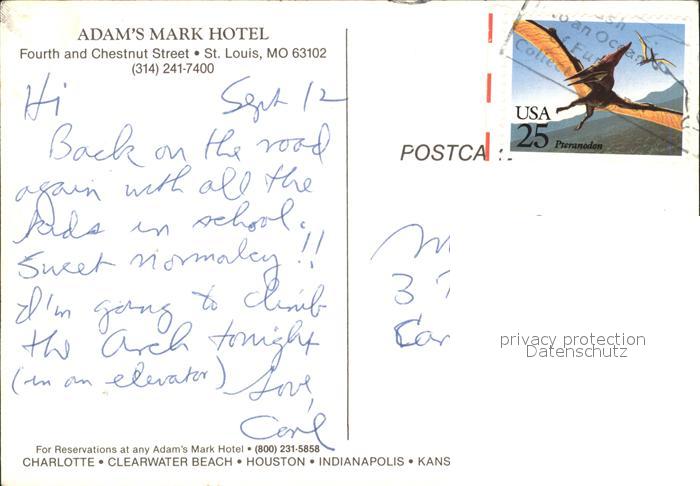 ADAM'S MARK HOTEL
Fourth and Chestnut Street • St. Louis, MO 63102
(314) 241-7400
Hi Sept 12
Back on the road
again with all the
kids in school.
Sweet normalcy!!
I'm going to climb
the Arch tonight
(in an elevator) Love,
Carl
For Reservations at any Adam's Mark Hotel • (800) 231-5858
CHARLOTTE • CLEARWATER BEACH • HOUSTON • INDIANAPOLIS • KANS
USA
25 Pteranodon
POSTCA
M
3
Car
privacy protection
Datenschutz